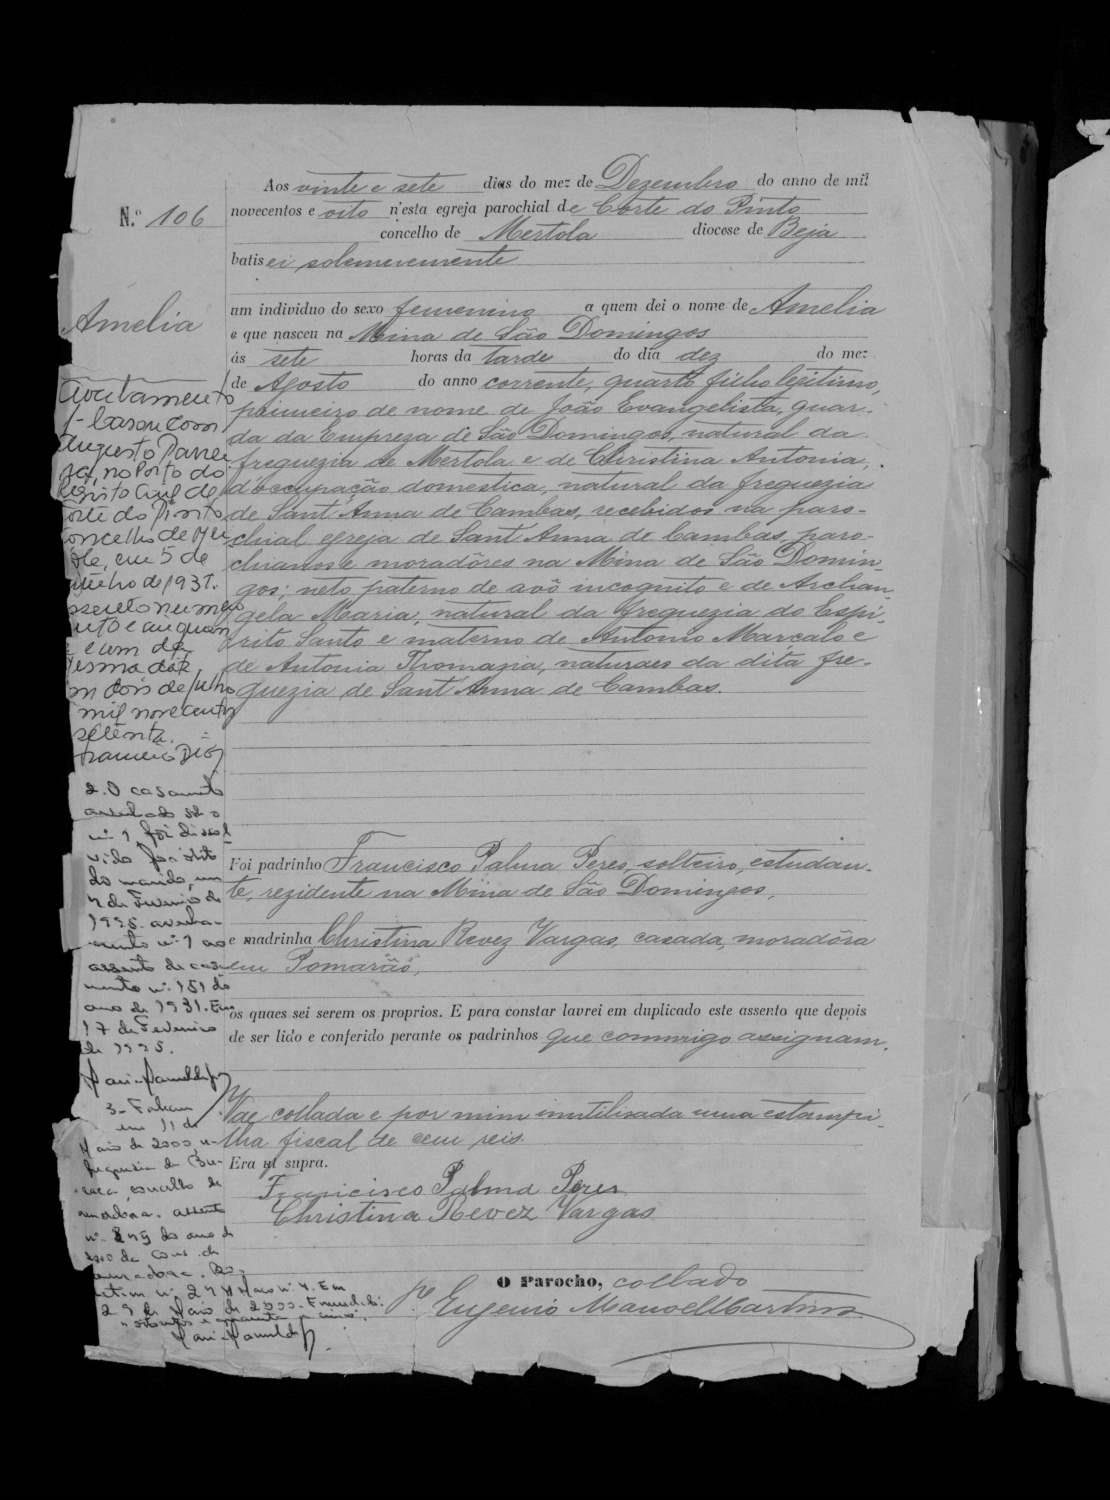 Aos vinte e sete dias do mez de Dezembro do anno de mil
N.º 106
novecentos e oito n'esta egreja parochial de Corte do Pinto
concelho de Mertola diocese de Beja
batisei solemnemente
Amelia
um individuo do sexo femenino a quem dei o nome de Amelia
e que nasceu na Mina de São Domingos
ás sete horas da tarde do dia dez do mez
de Agosto do anno corrente, quarto filho legitimo,
primeiro de nome de João Evangelista, guar-
da da Empreza de São Domingos, natural da
freguezia de Mertola e de Christina Antonia,
d'occupação domestica, natural da freguezia
de Sant'Anna de Cambas, recebidos na paro-
chial egreja de Sant'Anna de Cambas, paro-
chianos e moradôres na Mina de São Domin-
gos; neto paterno de avô incognito e de Archan-
gela Maria, natural da freguezia do Espi-
rito Santo e materno de Antonio Marçalo e
de Antonia Thomazia, naturaes da dita fre-
guezia de Sant'Anna de Cambas.
Foi padrinho Francisco Palma Peres, solteiro, estudan-
te, rezidente na Mina de São Domingos,
e madrinha Christina Revez Vargas, casada, moradôra
em Pomarão,
os quaes sei serem os proprios. E para constar lavrei em duplicado este assento que depois
de ser lido e conferido perante os padrinhos que commigo assignam.
Vae collada e por mim inutilisada uma estampi-
lha fiscal de cem reis.
Era ut supra.
Francisco Palma Peres
Christina Revez Vargas
O Parocho, collado
Pe Eugenio Manoel Martins
Averbamento
1- Casou com
Augusto
no Posto do
Registo Civil de
Corte do Pinto
concelho de
em 5 de
de 1931.
dois de julho
mil novecentos
setenta.
2. O casamento
averbado sob o
nº 1 foi dissol-
vido por óbito
do marido, em
4 de Fevereiro de
1995. averba-
mento nº 1 ao
assento de casa-
mento nº 151 do
ano de 1931. Em
17 de Fevereiro
de 1995.
3- Faleceu
em 11 de
Maio de 2000, na
freguesia da
concelho de
Amadora. assento
nº 849 do ano de
2000 da Cons. de
Amadora.
29 de Maio de 2000.